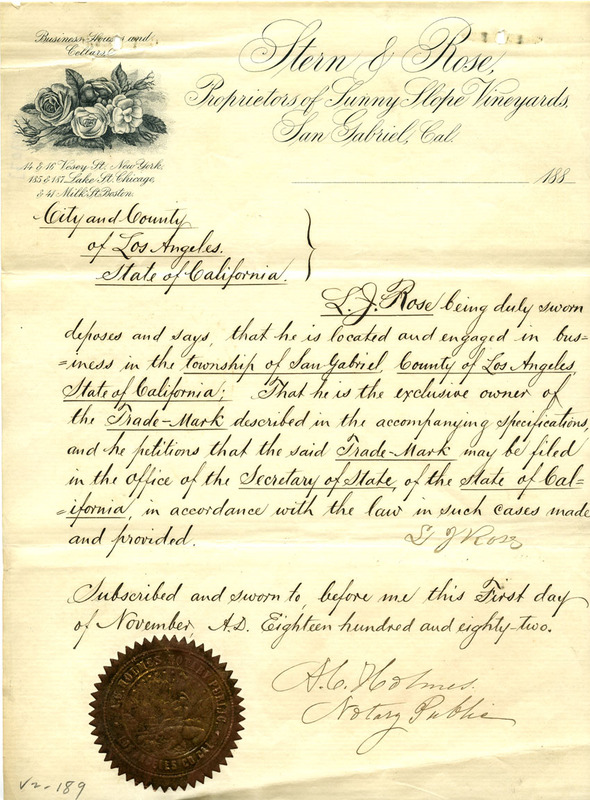 Business Houses and
Cellars
14 & 16 Vesey St. New York,
185 & 187 Lake St. Chicago,
& 41 Milk St. Boston.
Stern & Rose,
Proprietors of Sunny Slope Vineyards,
San Gabriel, Cal.
188
City and County
of Los Angeles.
State of California.
L. J. Rose being duly sworn
deposes and says, that he is located and engaged in bus-
=iness in the township of San Gabriel, County of Los Angeles,
State of California; That he is the exclusive owner of
the Trade-Mark described in the accompanying specifications,
and he petitions that the said Trade-Mark may be filed
in the Office of the Secretary of State, of the State of Cal=
=ifornia, in accordance with the law in such cases made
and provided.
L J Rose
Subscribed and sworn to, before me this First day
of November, A.D. Eighteen hundred and eighty-two.
A. C. Holmes.
Notary Public
A. C. HOLMES NOTARY PUBLIC
LOS ANGELES CO. CAL.
V2-189